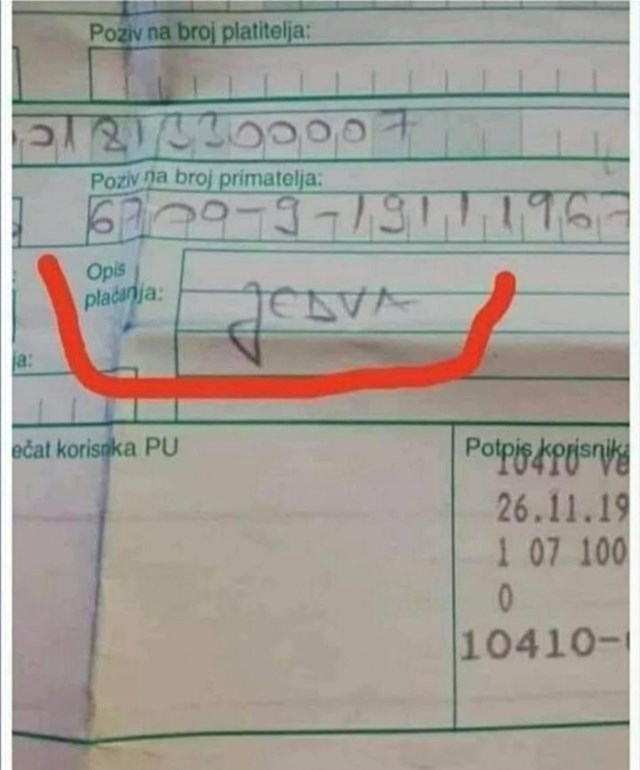 Poziv na broj platitelja:
0181330000 7
Poziv na broj primatelja:
6700-9-19111967
Opis
plaćanja:
JEDVA
ja:
ečat korisnka PU
Potpis korisnika
10410 Ve
26.11.19
1 07 100
0
10410-